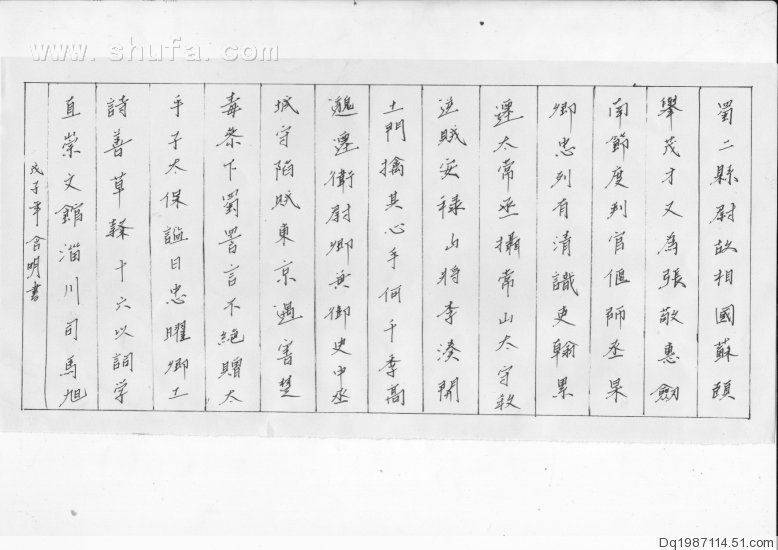 蜀二縣尉故相國蘇頲
舉茂才又為張敬惠劍
南節度判官偃師丞杲
卿忠列有清識吏翰累
遷太常丞攝常山太守殺
逆賊安祿山將李湊開
土門擒其心手何千季高
邈遷衛尉卿兼御史中丞
城守陷賊東京遇害楚
毒条下蜀詈言不絕贈太
乎子太保謚曰忠曜卿工
詩善草隸十六以詞学
直崇文館淄川司馬旭
戊子年含明書
www.shufa.com
Dq1987114.51.com